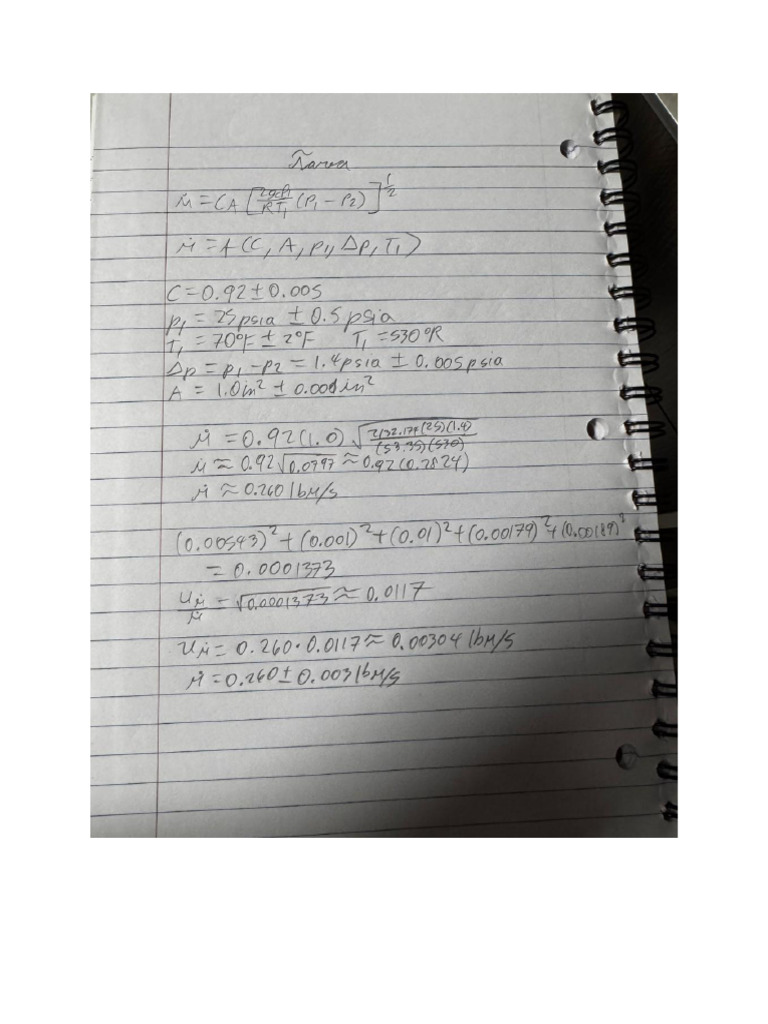 Tarea
ṁ = CA [2gcp₁/RT₁ (P₁ - P₂)]^1/2
ṁ = f(C, A, p₁, Δp, T₁)
C = 0.92 ± 0.005
p₁ = 25 psia ± 0.5 psia
T₁ = 70°F ± 2°F T₁ = 530°R
Δp = p₁ - p₂ = 1.4 psia ± 0.005 psia
A = 1.0 in² ± 0.001 in²
ṁ = 0.92 (1.0) √2(32.174)(25)(1.4)/(53.35)(530)
ṁ ≈ 0.92 √0.0797 ≈ 0.92 (0.2824)
ṁ ≈ 0.260 lbm/s
(0.00543)² + (0.001)² + (0.01)² + (0.00179)² + (0.00189)²
= 0.0001373
uṁ/ṁ = √0.0001373 ≈ 0.0117
uṁ = 0.260 · 0.0117 ≈ 0.00304 lbm/s
ṁ = 0.260 ± 0.003 lbm/s